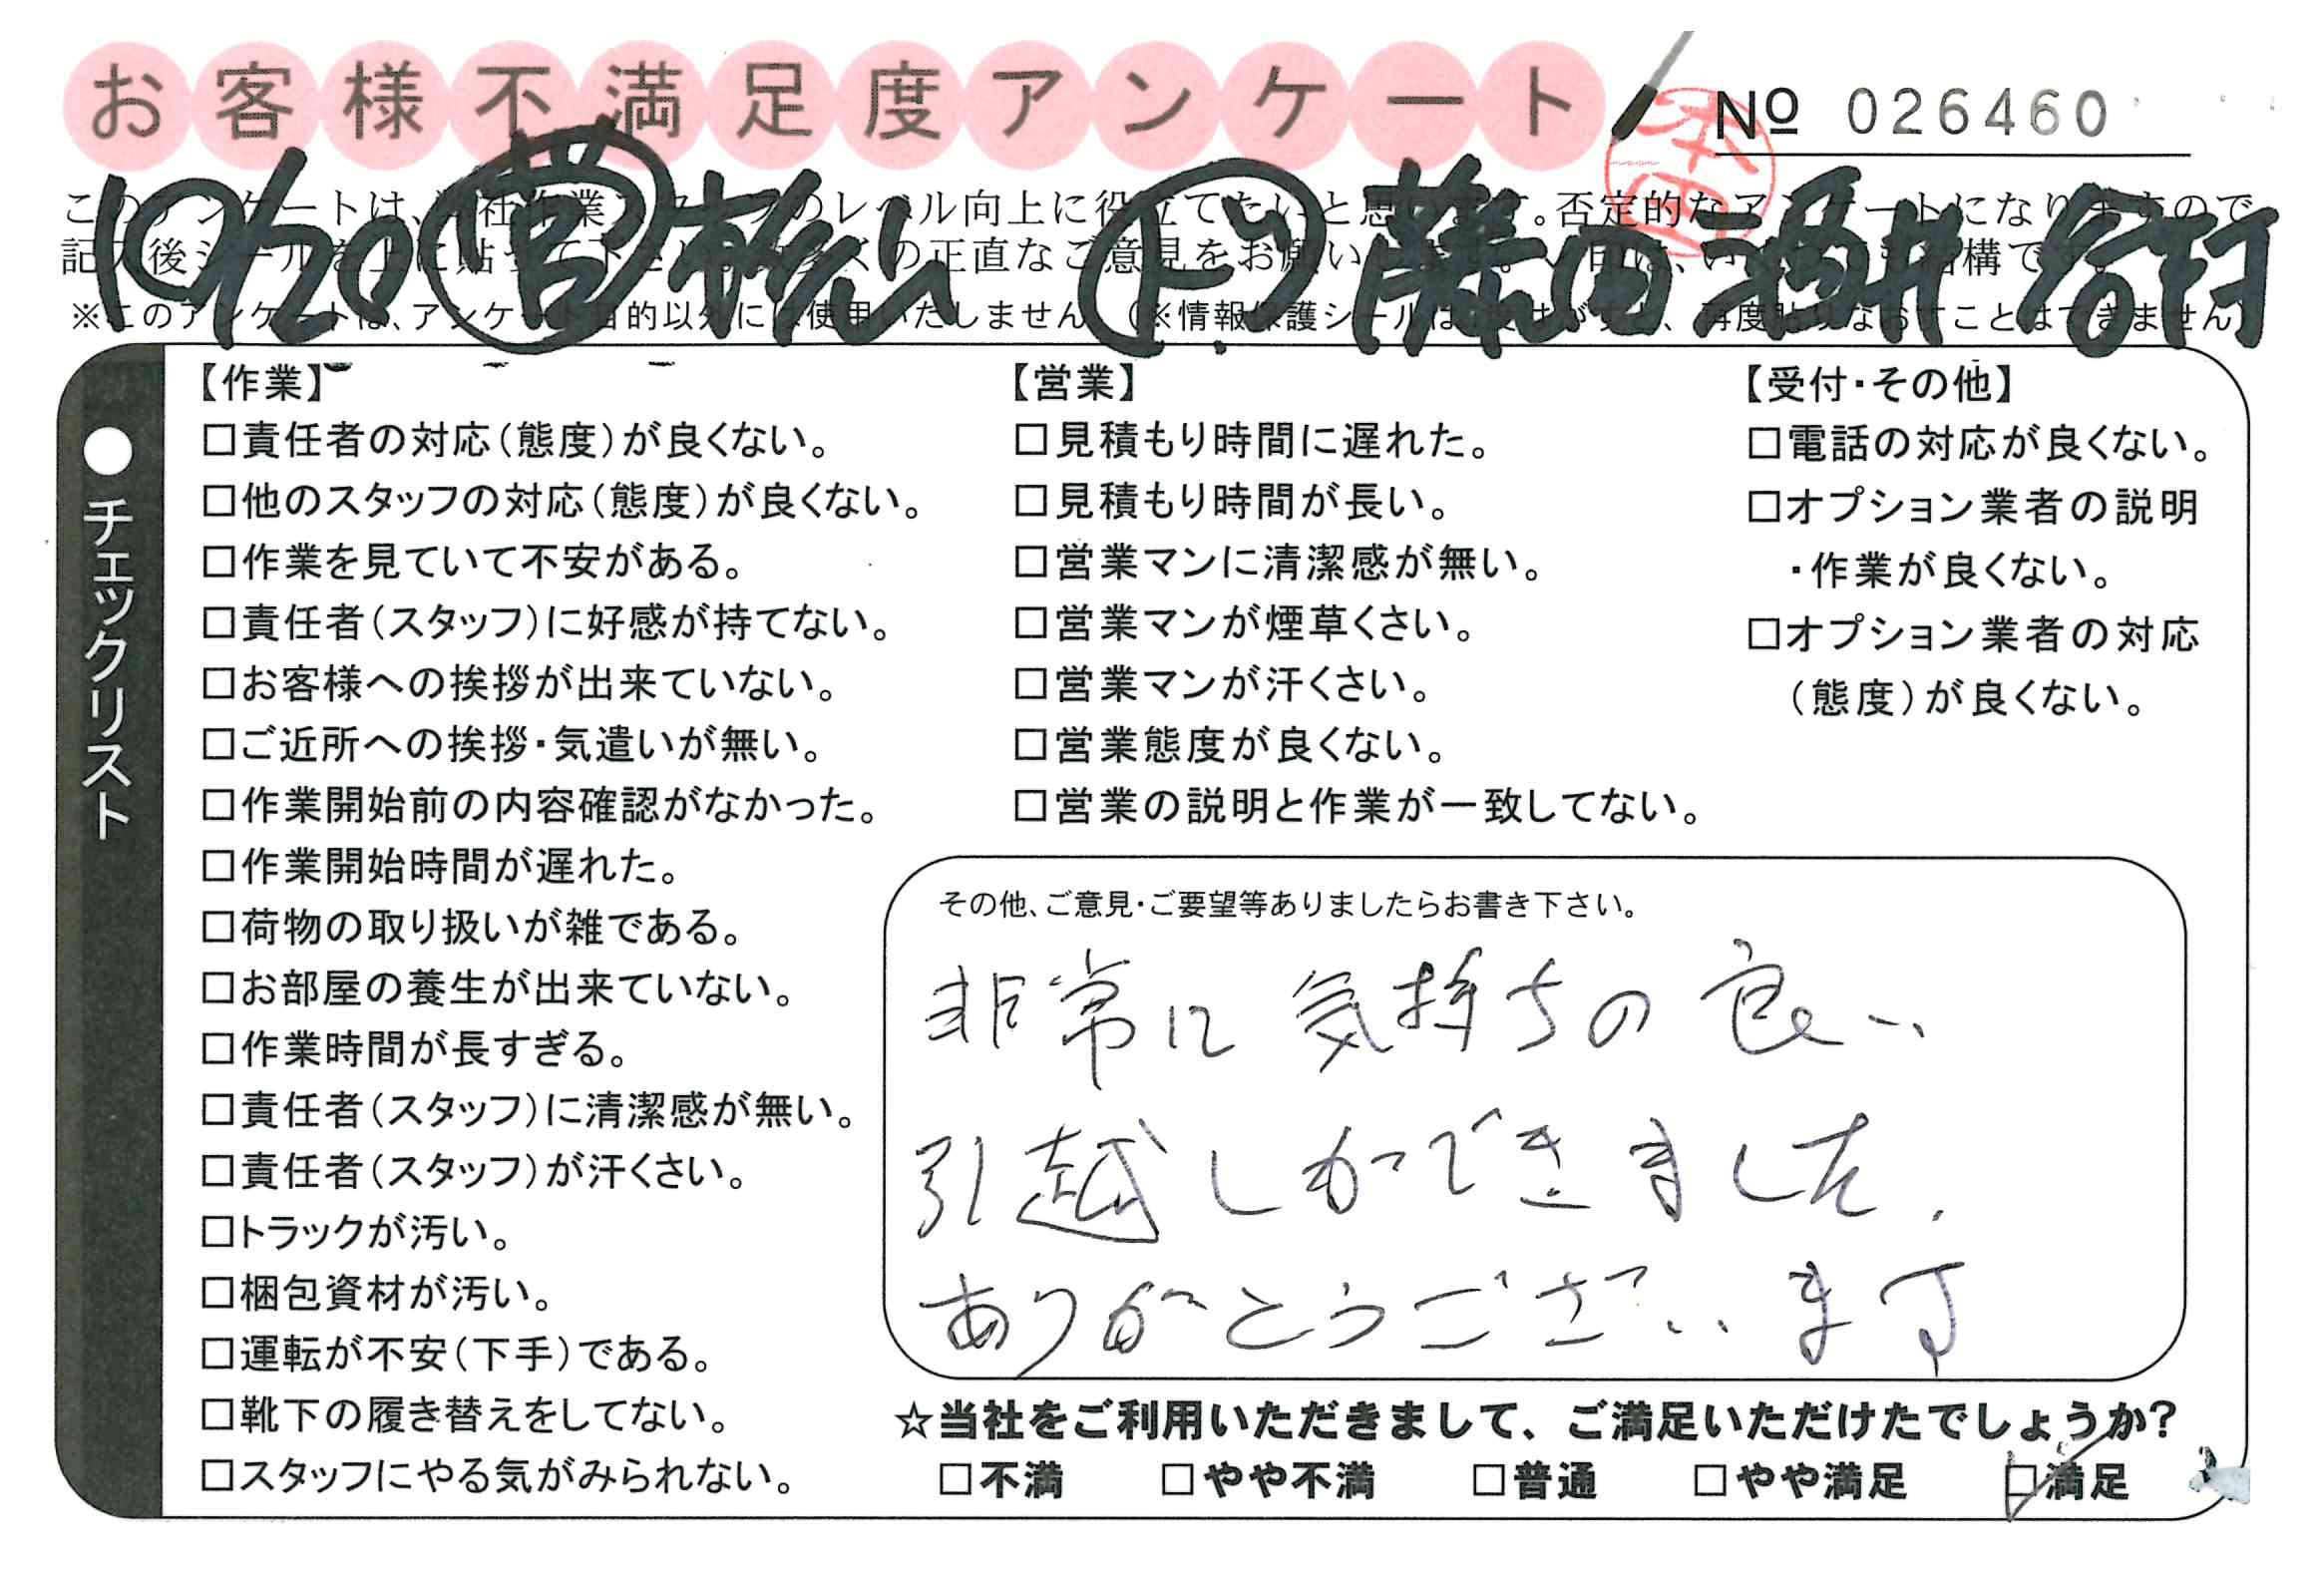 お客様不満足度アンケート
No 026460
10/20 営 松山 ド 藤田 酒井 谷村
このアンケートは、当社作業スタッフのレベル向上に役立てたいと思います。否定的なアンケートになりますので
記入後シールを上に貼って下さい。 の正直なご意見をお願い
※このアンケートは、アンケート目的以外には使用いたしません (※情報保護シールは 再度貼りなおすことはできません)
●チェックリスト
【作業】
□責任者の対応(態度)が良くない。
□他のスタッフの対応(態度)が良くない。
□作業を見ていて不安がある。
□責任者(スタッフ)に好感が持てない。
□お客様への挨拶が出来ていない。
□ご近所への挨拶・気遣いが無い。
□作業開始前の内容確認がなかった。
□作業開始時間が遅れた。
□荷物の取り扱いが雑である。
□お部屋の養生が出来ていない。
□作業時間が長すぎる。
□責任者(スタッフ)に清潔感が無い。
□責任者(スタッフ)が汗くさい。
□トラックが汚い。
□梱包資材が汚い。
□運転が不安(下手)である。
□靴下の履き替えをしてない。
□スタッフにやる気がみられない。
【営業】
□見積もり時間に遅れた。
□見積もり時間が長い。
□営業マンに清潔感が無い。
□営業マンが煙草くさい。
□営業マンが汗くさい。
□営業態度が良くない。
□営業の説明と作業が一致してない。
【受付・その他】
□電話の対応が良くない。
□オプション業者の説明
・作業が良くない。
□オプション業者の対応
(態度)が良くない。
その他、ご意見・ご要望等ありましたらお書き下さい。
非常に気持ちの良い
引越しができました.
ありがとうございます
☆当社をご利用いただきまして、ご満足いただけたでしょうか?
□不満 □やや不満 □普通 □やや満足 □満足